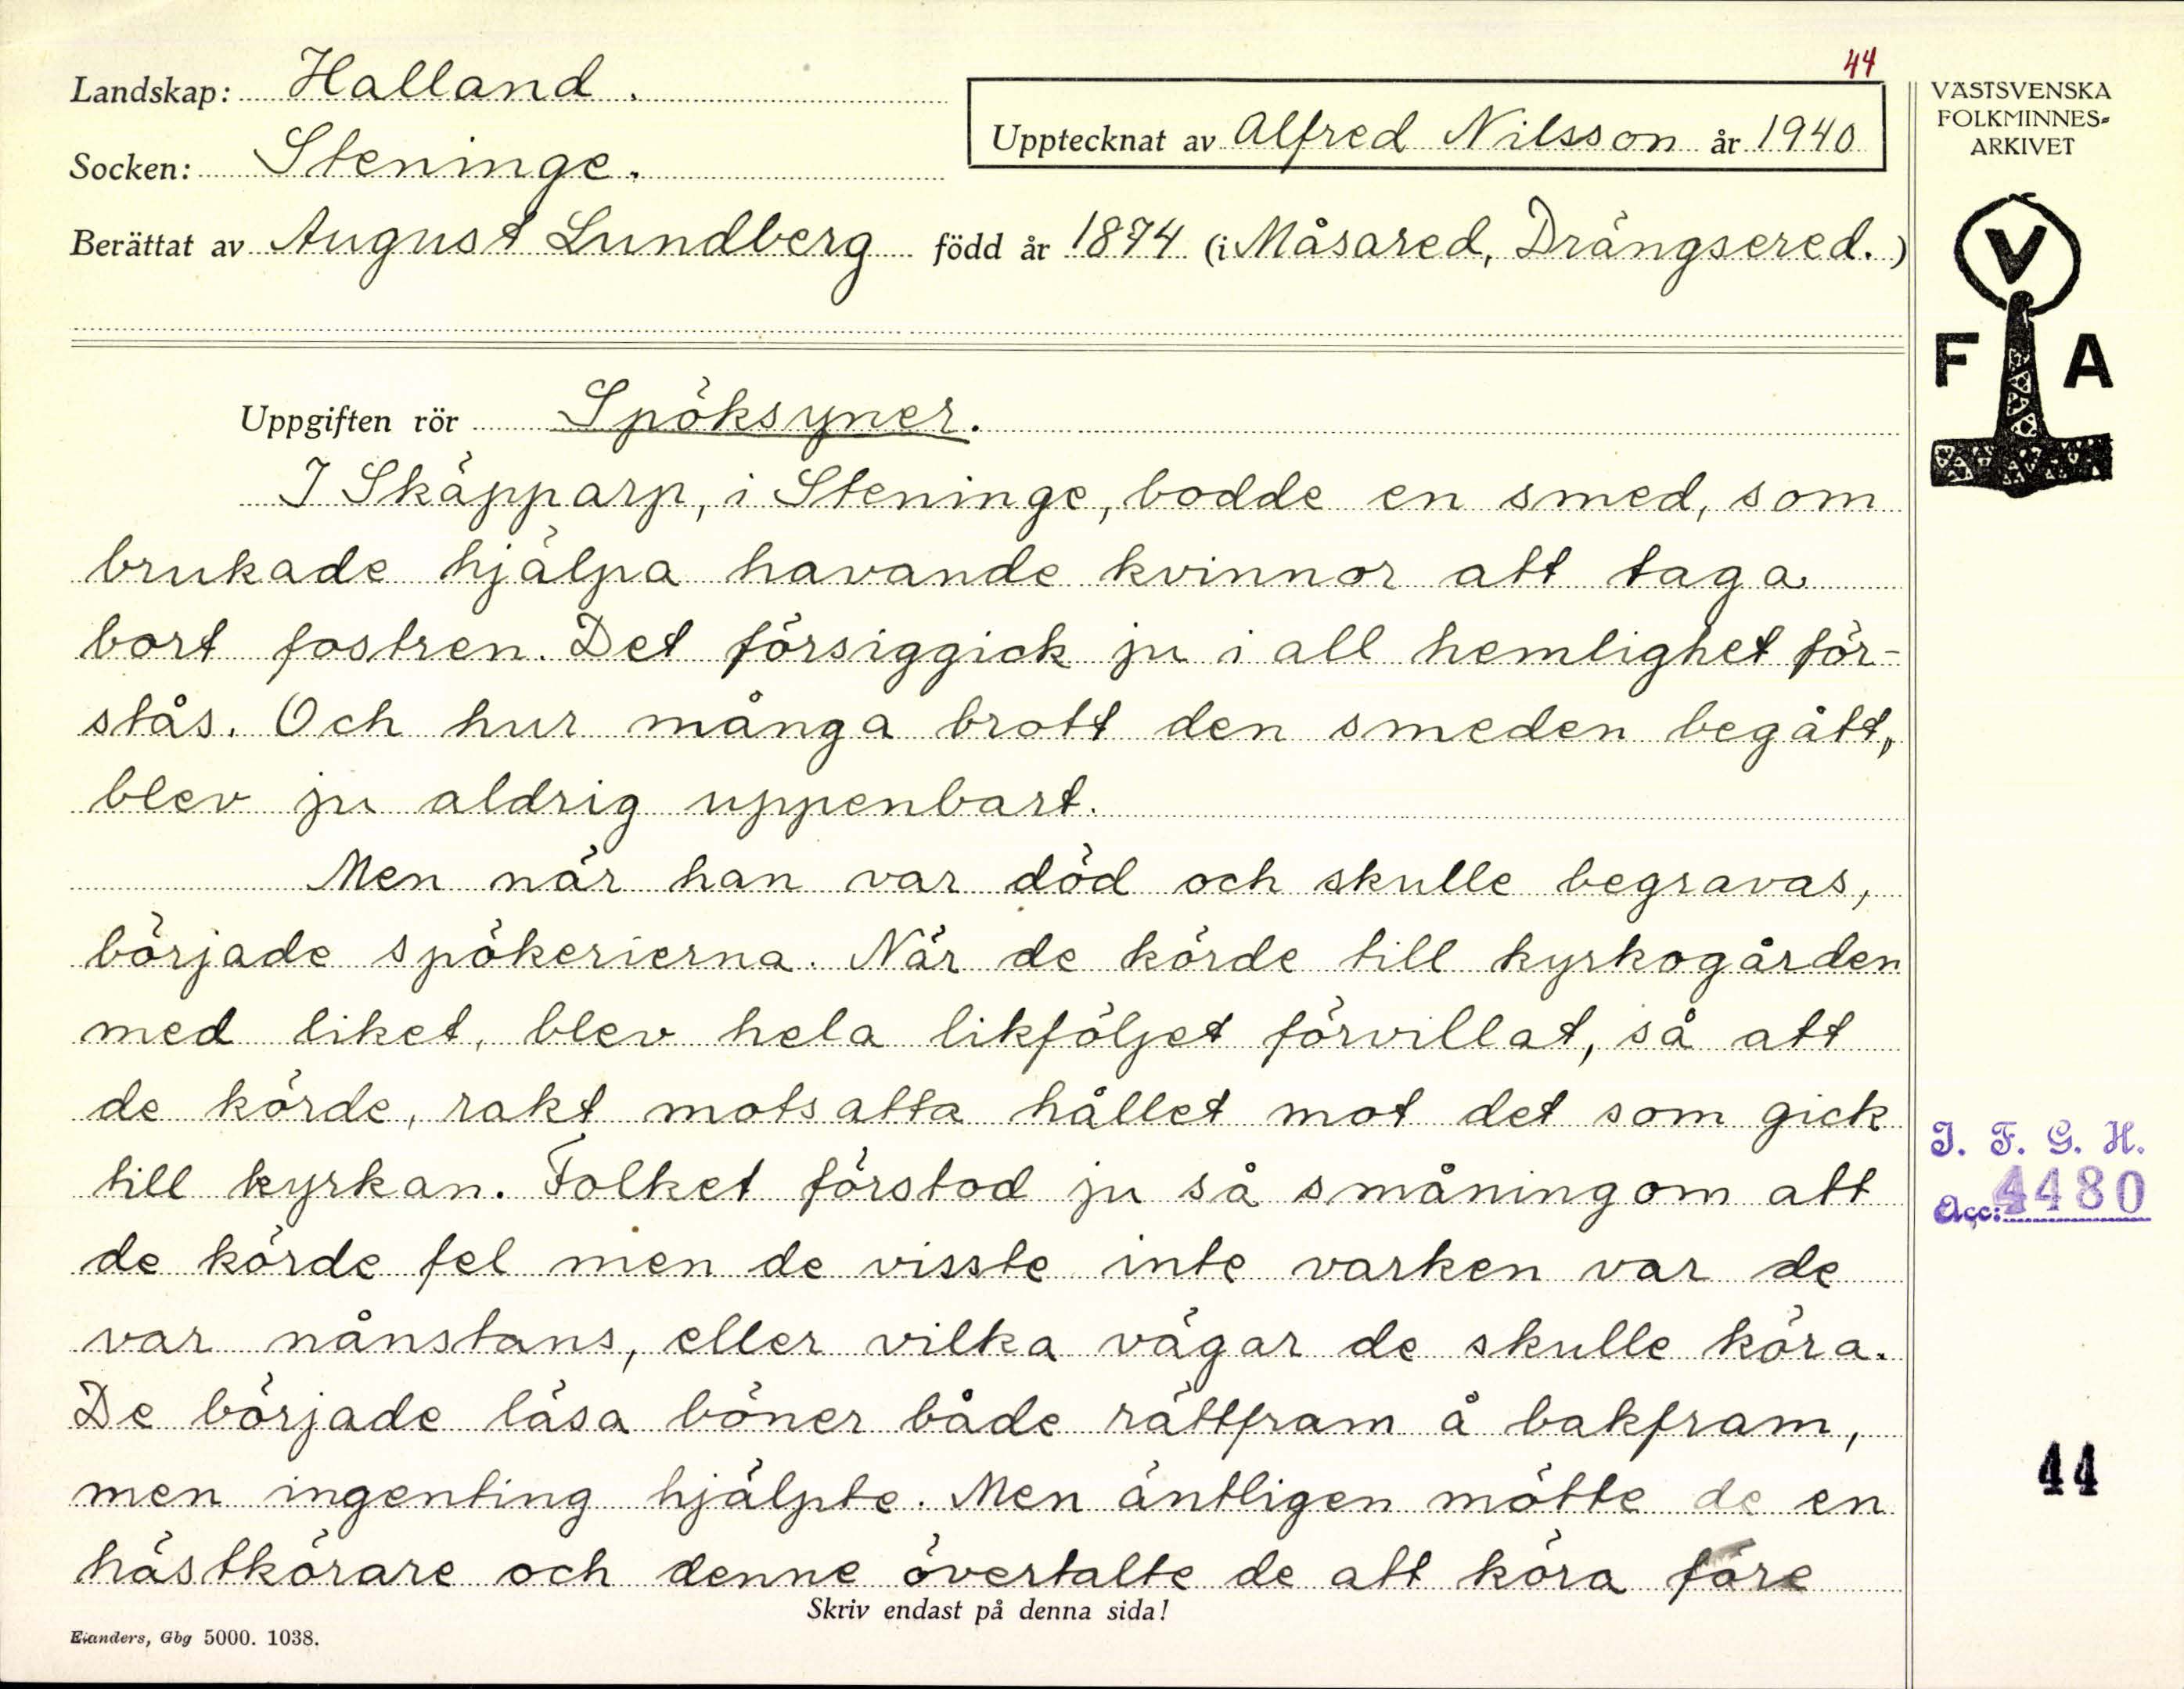 44
Landskap: Halland.
Upptecknat av Alfred Nilsson år 1940
Socken: Steninge.
Berättat av August Lundberg född år 1874 (i Måsared, Drängsered.)
VÄSTSVENSKA
FOLKMINNES=
ARKIVET
V
F A
Uppgiften rör Spöksyner.
I Skäpparp, i Steninge, bodde en smed, som
brukade hjälpa havande kvinnor att taga
bort fostren. Det försiggick ju i all hemlighet för-
stås. Och hur många brott den smeden begått,
blev ju aldrig uppenbart.
Men när han var död och skulle begravas,
började spökerierna. När de körde till kyrkogården
med liket, blev hela likföljet förvillat, så att
de körde, rakt motsatta hållet mot det som gick
till kyrkan. Folket förstod ju så småningom att
de körde fel men de visste inte varken var de
var nånstans, eller vilka vägar de skulle köra.
De började läsa böner både rättfram å bakfram,
men ingenting hjälpte. Men äntligen mötte de en
hästkörare och denne övertalte de att köra före
Skriv endast på denna sida!
Elanders, Gbg 5000. 1038.
I. F. G. H.
Acc: 4480
44